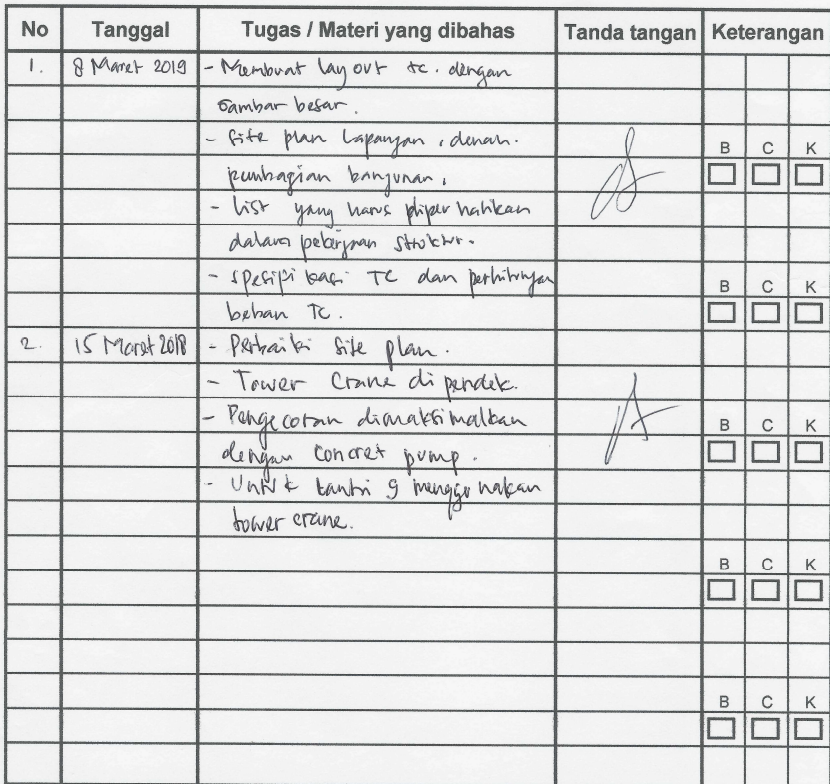 No Tanggal Tugas / Materi yang dibahas Tanda tangan Keterangan
1. 8 Maret 2019 - Membuat lay out tc. dengan
Gambar besar.
- Site plan lapangan, denah.
B C K
pembagian bangunan.
- List yang harus diperhatikan
dalam pekerjaan struktur.
- Spesifikasi TC dan perhitungan
B C K
beban TC.
2. 15 Maret 2018 - Perbaiki site plan.
- Tower Crane di pendek.
- Pengecoran dimaksimalkan
B C K
dengan concret pump.
- Untuk lantai 9 menggunakan
tower crane.
B C K
B C K